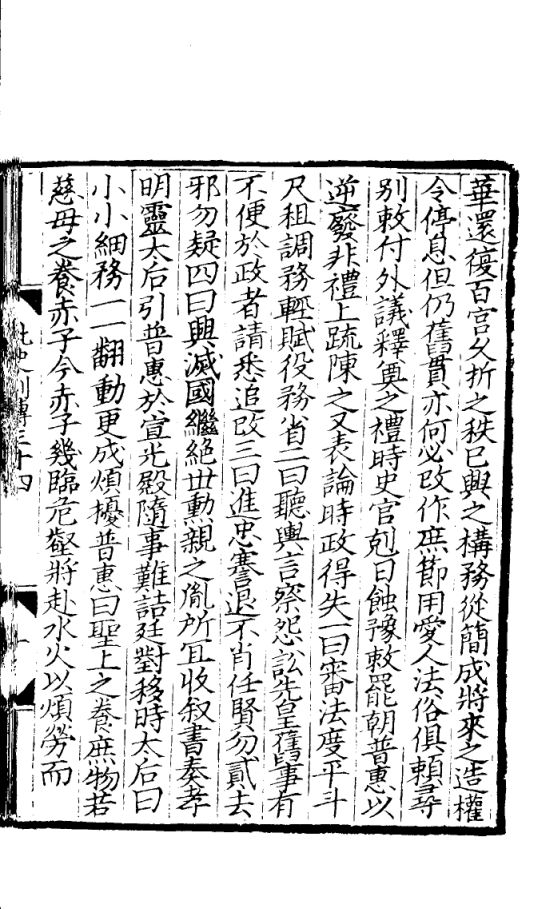 華還復百官久折之秩已興之構務從簡成將來之造權
令停息但仍舊貫亦何必改作庶節用愛人法俗俱頼尋
别敕付外議釋奠之禮時史官剋日蝕豫敕罷朝普惠以
逆廢非禮上疏陳之又表論時政得失一曰審法度平斗
尺租調務輕賦役務省二曰聽輿言察怨訟先皇舊事有
不便於政者請悉追改三曰進忠謇退不肖任賢勿貳去
邪勿疑四曰興滅國繼絶世勲親之胤所冝收叙書奏孝
明靈太后引普惠於宣光殿隨事難詰廷對移時太后曰
小小細務一一翻動更成煩擾普惠曰聖上之養庶物若
慈母之養赤子今赤子幾臨危壑將赴水火以煩勞而
北史列傳三十四